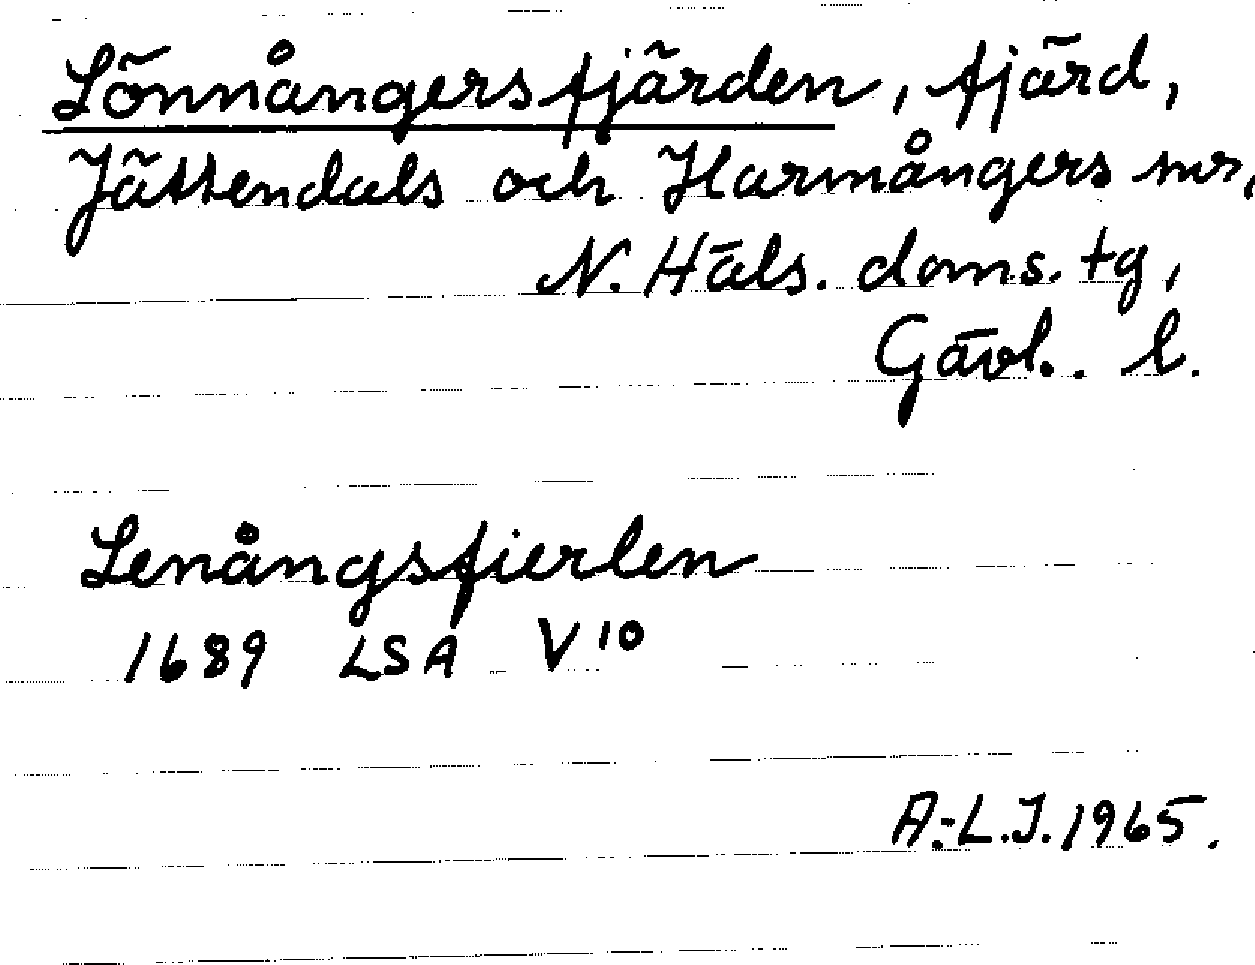 Lönnångersfjärden, fjärd,
Jättendals och Harmångers snr,
N. Häls. doms. tg,
Gävl. l.
Lenångsfierlen
1689 LSA V 10
A.-L.J. 1965.